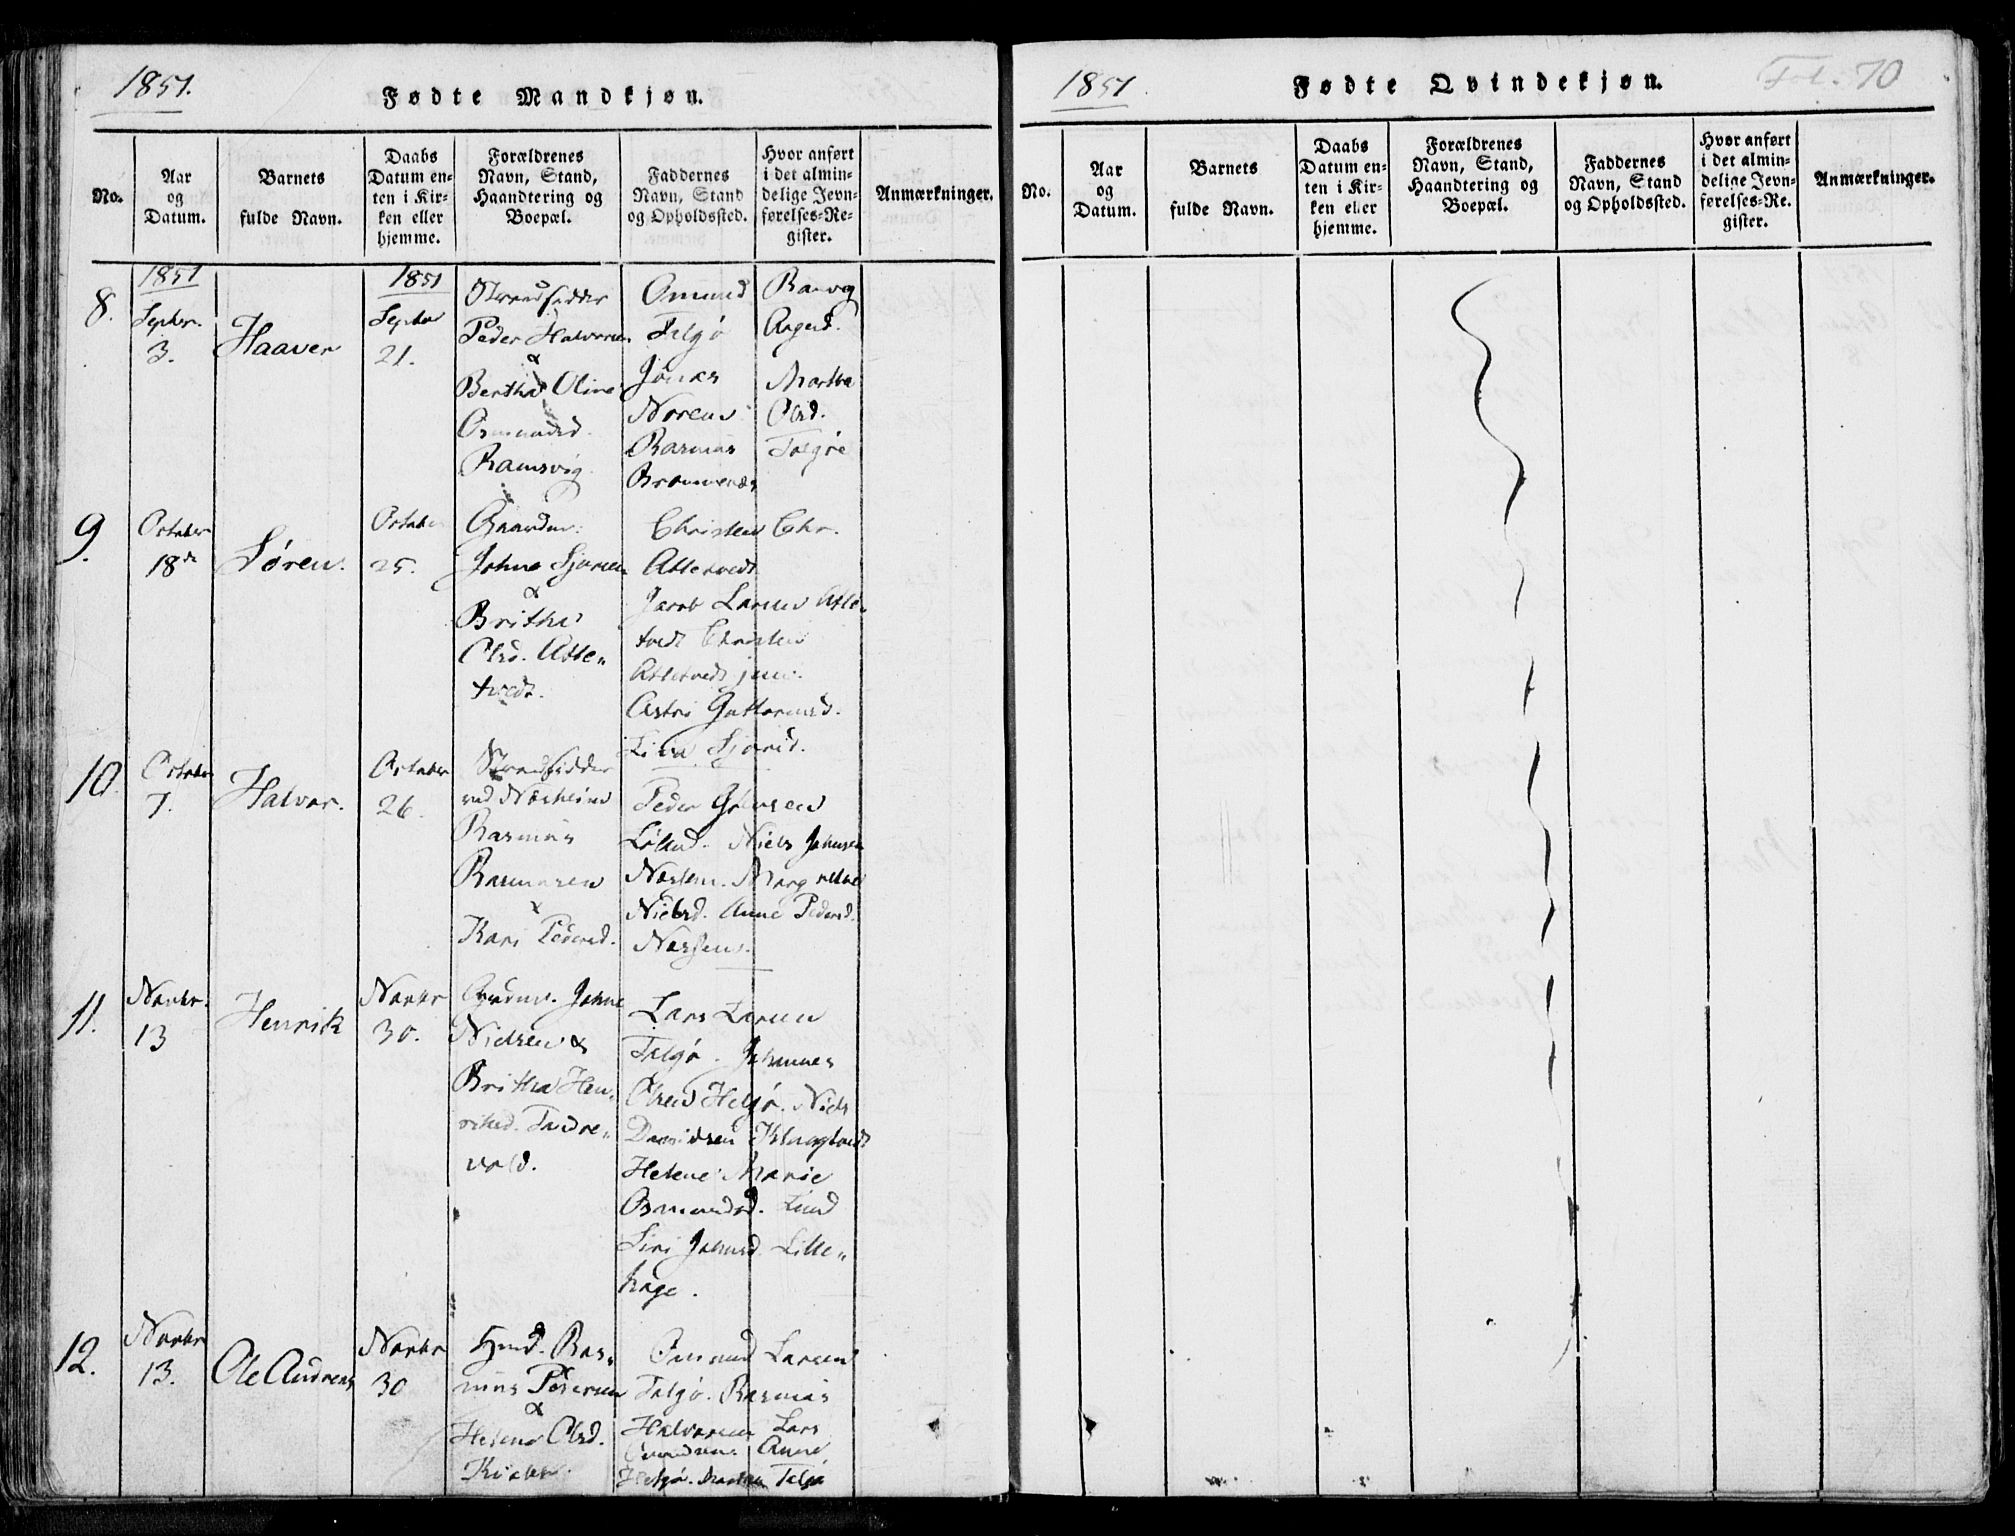 1851.
Fødte Mandkjøn.
No.
Aar
og
Datum.
Barnets
fulde Navn.
Daabs
Datum en-
ten i Kir-
ken eller
hjemme.
Forældrenes
Navn, Stand,
Haandtering og
Boepæl.
Faddernes
Navn, Stand
og Opholdssted.
Hvor anført
i det almin-
delige Jevn-
førelses-Re-
gister.
Anmærkninger.
8.
1851
Septbr.
3.
Haaver
1851
Septbr
21.
Strandsidder
Peder Halvorsen
&
Bertha Oline
Osmundsd.
Ramsvig.
Omund
Talgø
Jonas
Norend
Rasmus
Aagesd.
Martha
Olsd.
Talgøe
9.
October
18de
Søren.
October
25.
Gaardm:
Johne Sjursen
&
Britha
Olsd. Atle„
tvedt.
Christen Chr.
Atletvedt
Jacob Larsen Atle„
tvedt Christen
Atletvedt jun:
Astri Guttormsd.
10.
October
7.
Halvor.
October
26.
Strandsidder
ved Nærheim
Rasmus
Rasmusen
&
Kari Pedersd.
Peder
Niels Johnsen
Margrethe
Nielsd. Anne Pedersd.
11.
Novbr.
13
Henrik
Novbr
30.
Grdmd. Johne
Nielsen &
Britha Hen„
riksd. Landre„
vold.
Lars Larsen
Talgø. Johannes
Olsen Helgø. Niels
Davidsen
Helene Marie
Osmundsd. Lund
Siri Johnsd. Lille„
hage.
12.
Novbr
13.
Ole Andreas
Novbr
30
Hmd. Ras„
mus Pedersen
&
Helene Olsd.
Omund Larsen
Talgø. Rasmus
Halvorsen Lars
Anne
Helgø. Talgø
1851.
Fødte Qvindekjøn.
Fol. 70
No.
Aar
og
Datum.
Barnets
fulde Navn.
Daabs
Datum en-
ten i Kir-
ken eller
hjemme.
Forældrenes
Navn, Stand,
Haandtering og
Boepæl.
Faddernes
Navn, Stand
og Opholdssted.
Hvor anført
i det almin-
delige Jevn-
førelses-Re.
gister.
Anmærkninger.